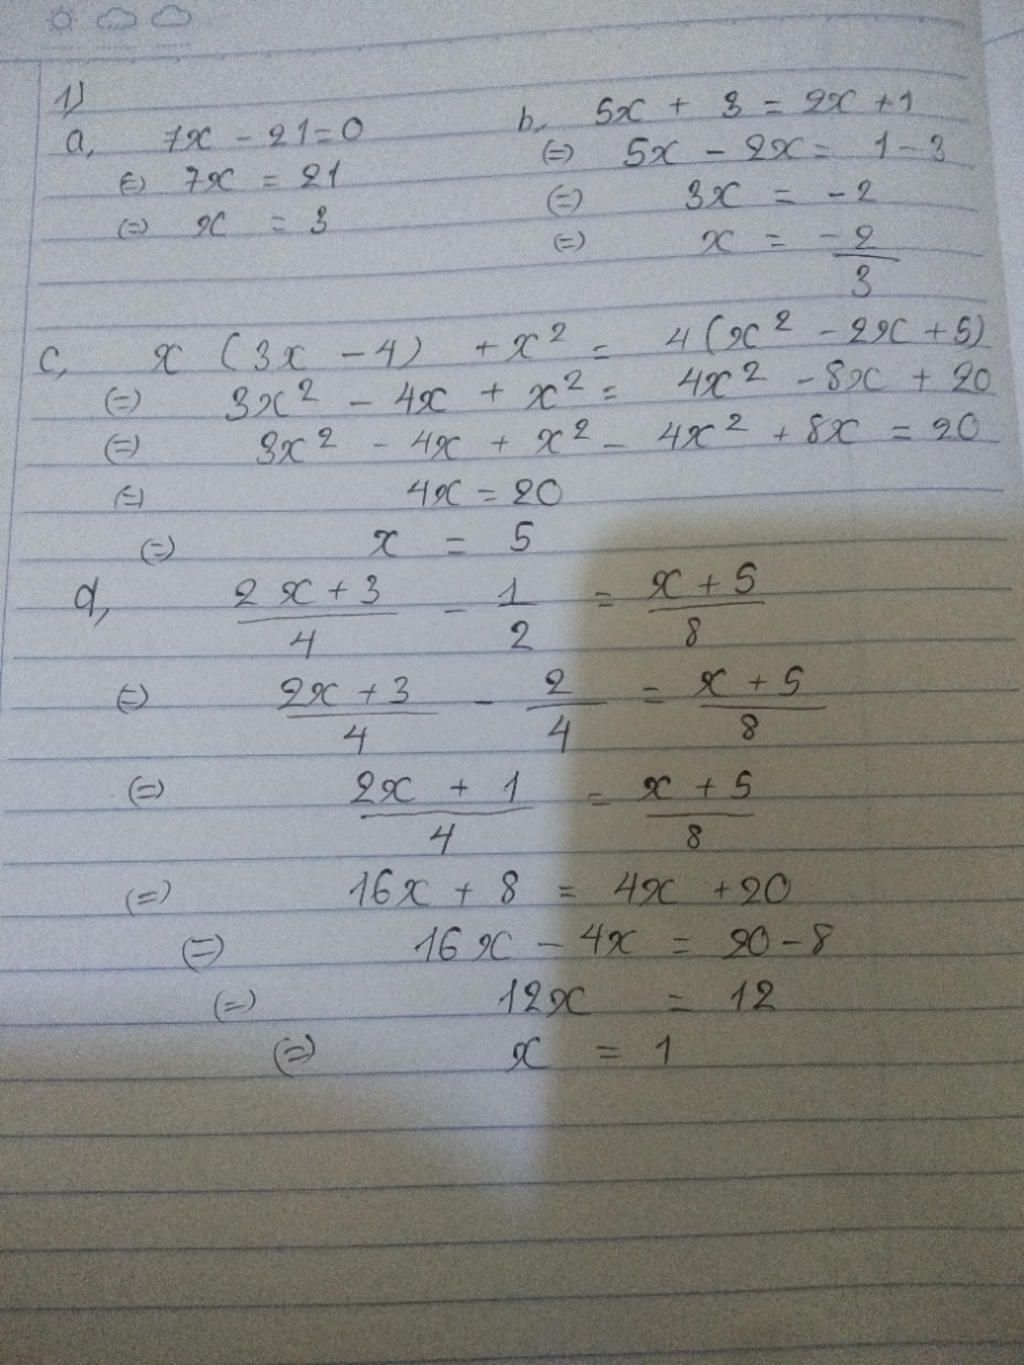 1)
a, 7x - 21 = 0
(=) 7x = 21
(=) x = 3
b, 5x + 3 = 2x + 1
(=) 5x - 2x = 1 - 3
(=) 3x = -2
(=) x = -2/3
c, x (3x - 4) + x² = 4(x² - 2x + 5)
(=) 3x² - 4x + x² = 4x² - 8x + 20
(=) 3x² - 4x + x² - 4x² + 8x = 20
(=) 4x = 20
(=) x = 5
d, (2x + 3)/4 - 1/2 = (x + 5)/8
(=) (2x + 3)/4 - 2/4 = (x + 5)/8
(=) (2x + 1)/4 = (x + 5)/8
(=) 16x + 8 = 4x + 20
(=) 16x - 4x = 20 - 8
(=) 12x = 12
(=) x = 1